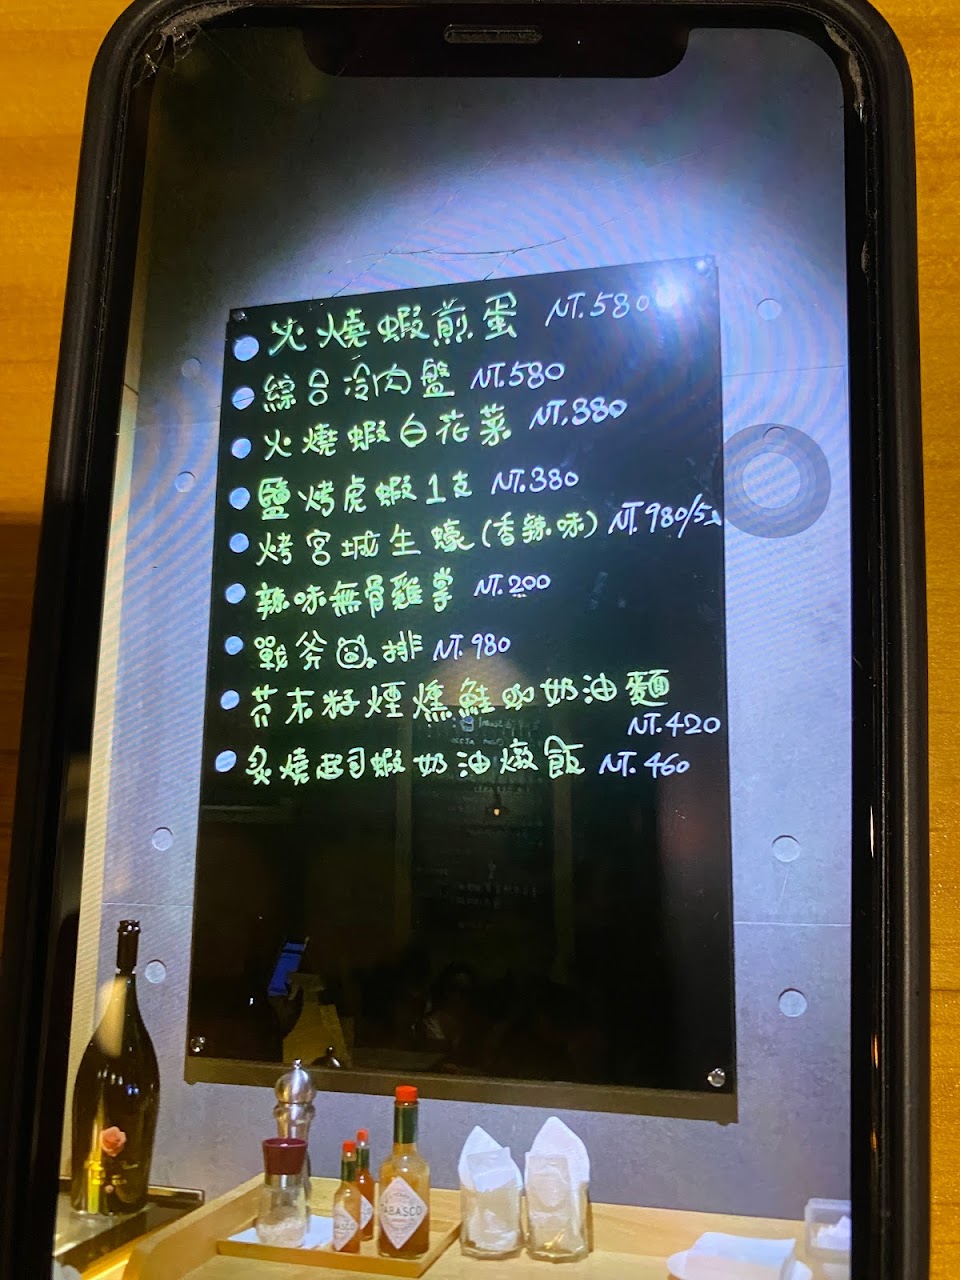 火燒蝦煎蛋 NT.580
綜合冷肉盤 NT.580
火燒蝦白花菜 NT.380
鹽烤虎蝦1支 NT.380
烤宮城生蠔(香辣味) NT.980/5
辣味無骨雞掌 NT.200
戰斧排 NT.980
芥末籽煙燻鮭咖奶油麵
NT.420
炙燒起司蝦奶油燉飯 NT.460
TABASCO